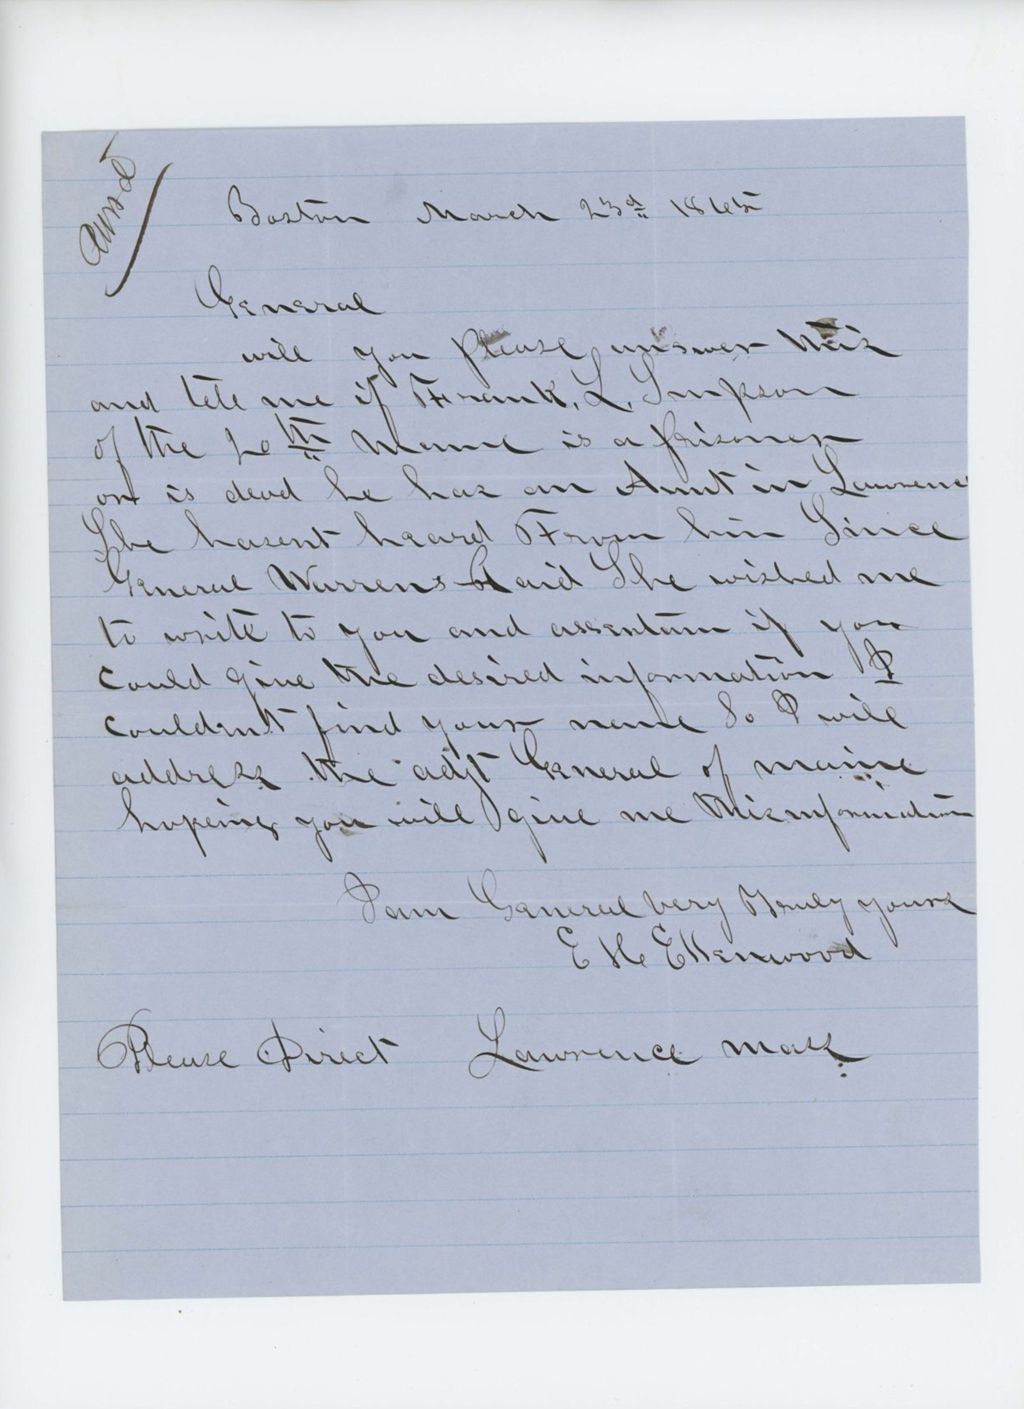 Ansd
Boston March 23d 1865
General
will you please answer this
and tell me if Frank. L. Simpson
of the 20th Maine is a prisoner
or is dead he has an Aunt in Lawrence
She hasent heard From him Since
General Warrens Raid She wished me
to write to you and assertain if you
could give the desired information I
couldnt find your name So I will
address the adjt General of maine
hopeing you will give me this information
I am General very Truly yours
E H Ellenwood
Please Direct Lawrence mass